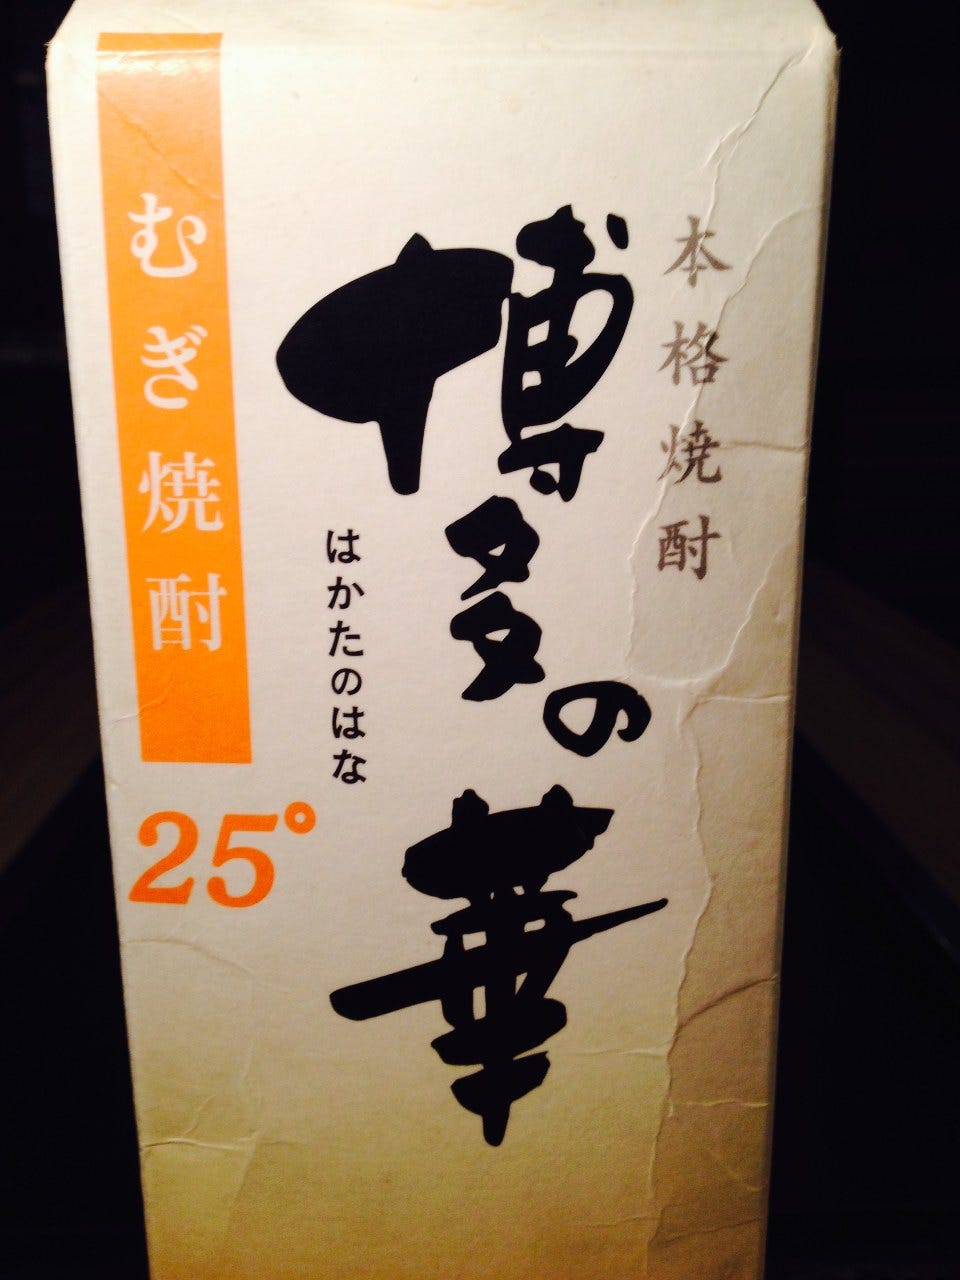 本格焼酎
博多の華
はかたのはな
むぎ焼酎
25°